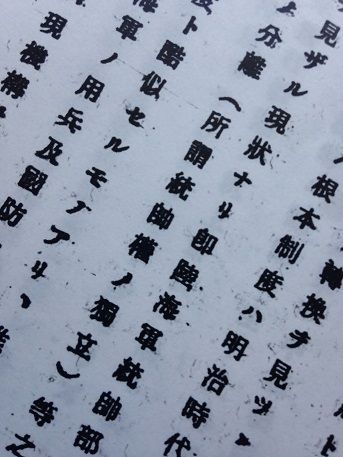 ト
轉換ヲ見ツヽ
根本制度ハ明治時代
見ザル現狀ナリ即陸海軍統帥部
分權(所謂統帥權ノ獨立)等之
ト酷似セルモノアリ、
軍ノ用兵及國防
現機構